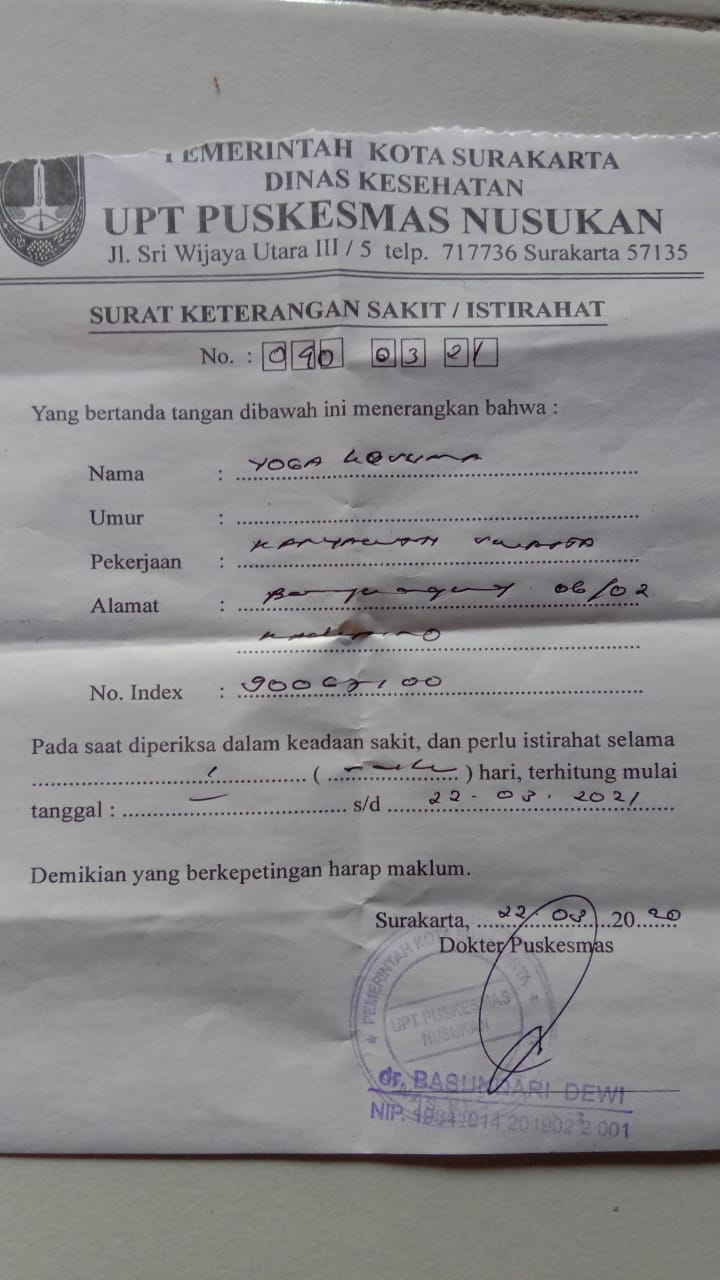 PEMERINTAH KOTA SURAKARTA
DINAS KESEHATAN
UPT PUSKESMAS NUSUKAN
Jl. Sri Wijaya Utara III / 5 telp. 717736 Surakarta 57135
SURAT KETERANGAN SAKIT / ISTIRAHAT
No. : 090 03 21
Yang bertanda tangan dibawah ini menerangkan bahwa :
Nama : YOGA
Umur :
Pekerjaan : KARYAWAN SWASTA
Alamat : 06/02
No. Index :
Pada saat diperiksa dalam keadaan sakit, dan perlu istirahat selama
1 ( ) hari, terhitung mulai
tanggal : s/d 22-03-2021
Demikian yang berkepetingan harap maklum.
Surakarta, 22-03 2020
Dokter Puskesmas
PEMERINTAH KOTA
UPT. PUSKESMAS
NUSUKAN
dr. BASUNDARI DEWI
NIP. 201902 2 001